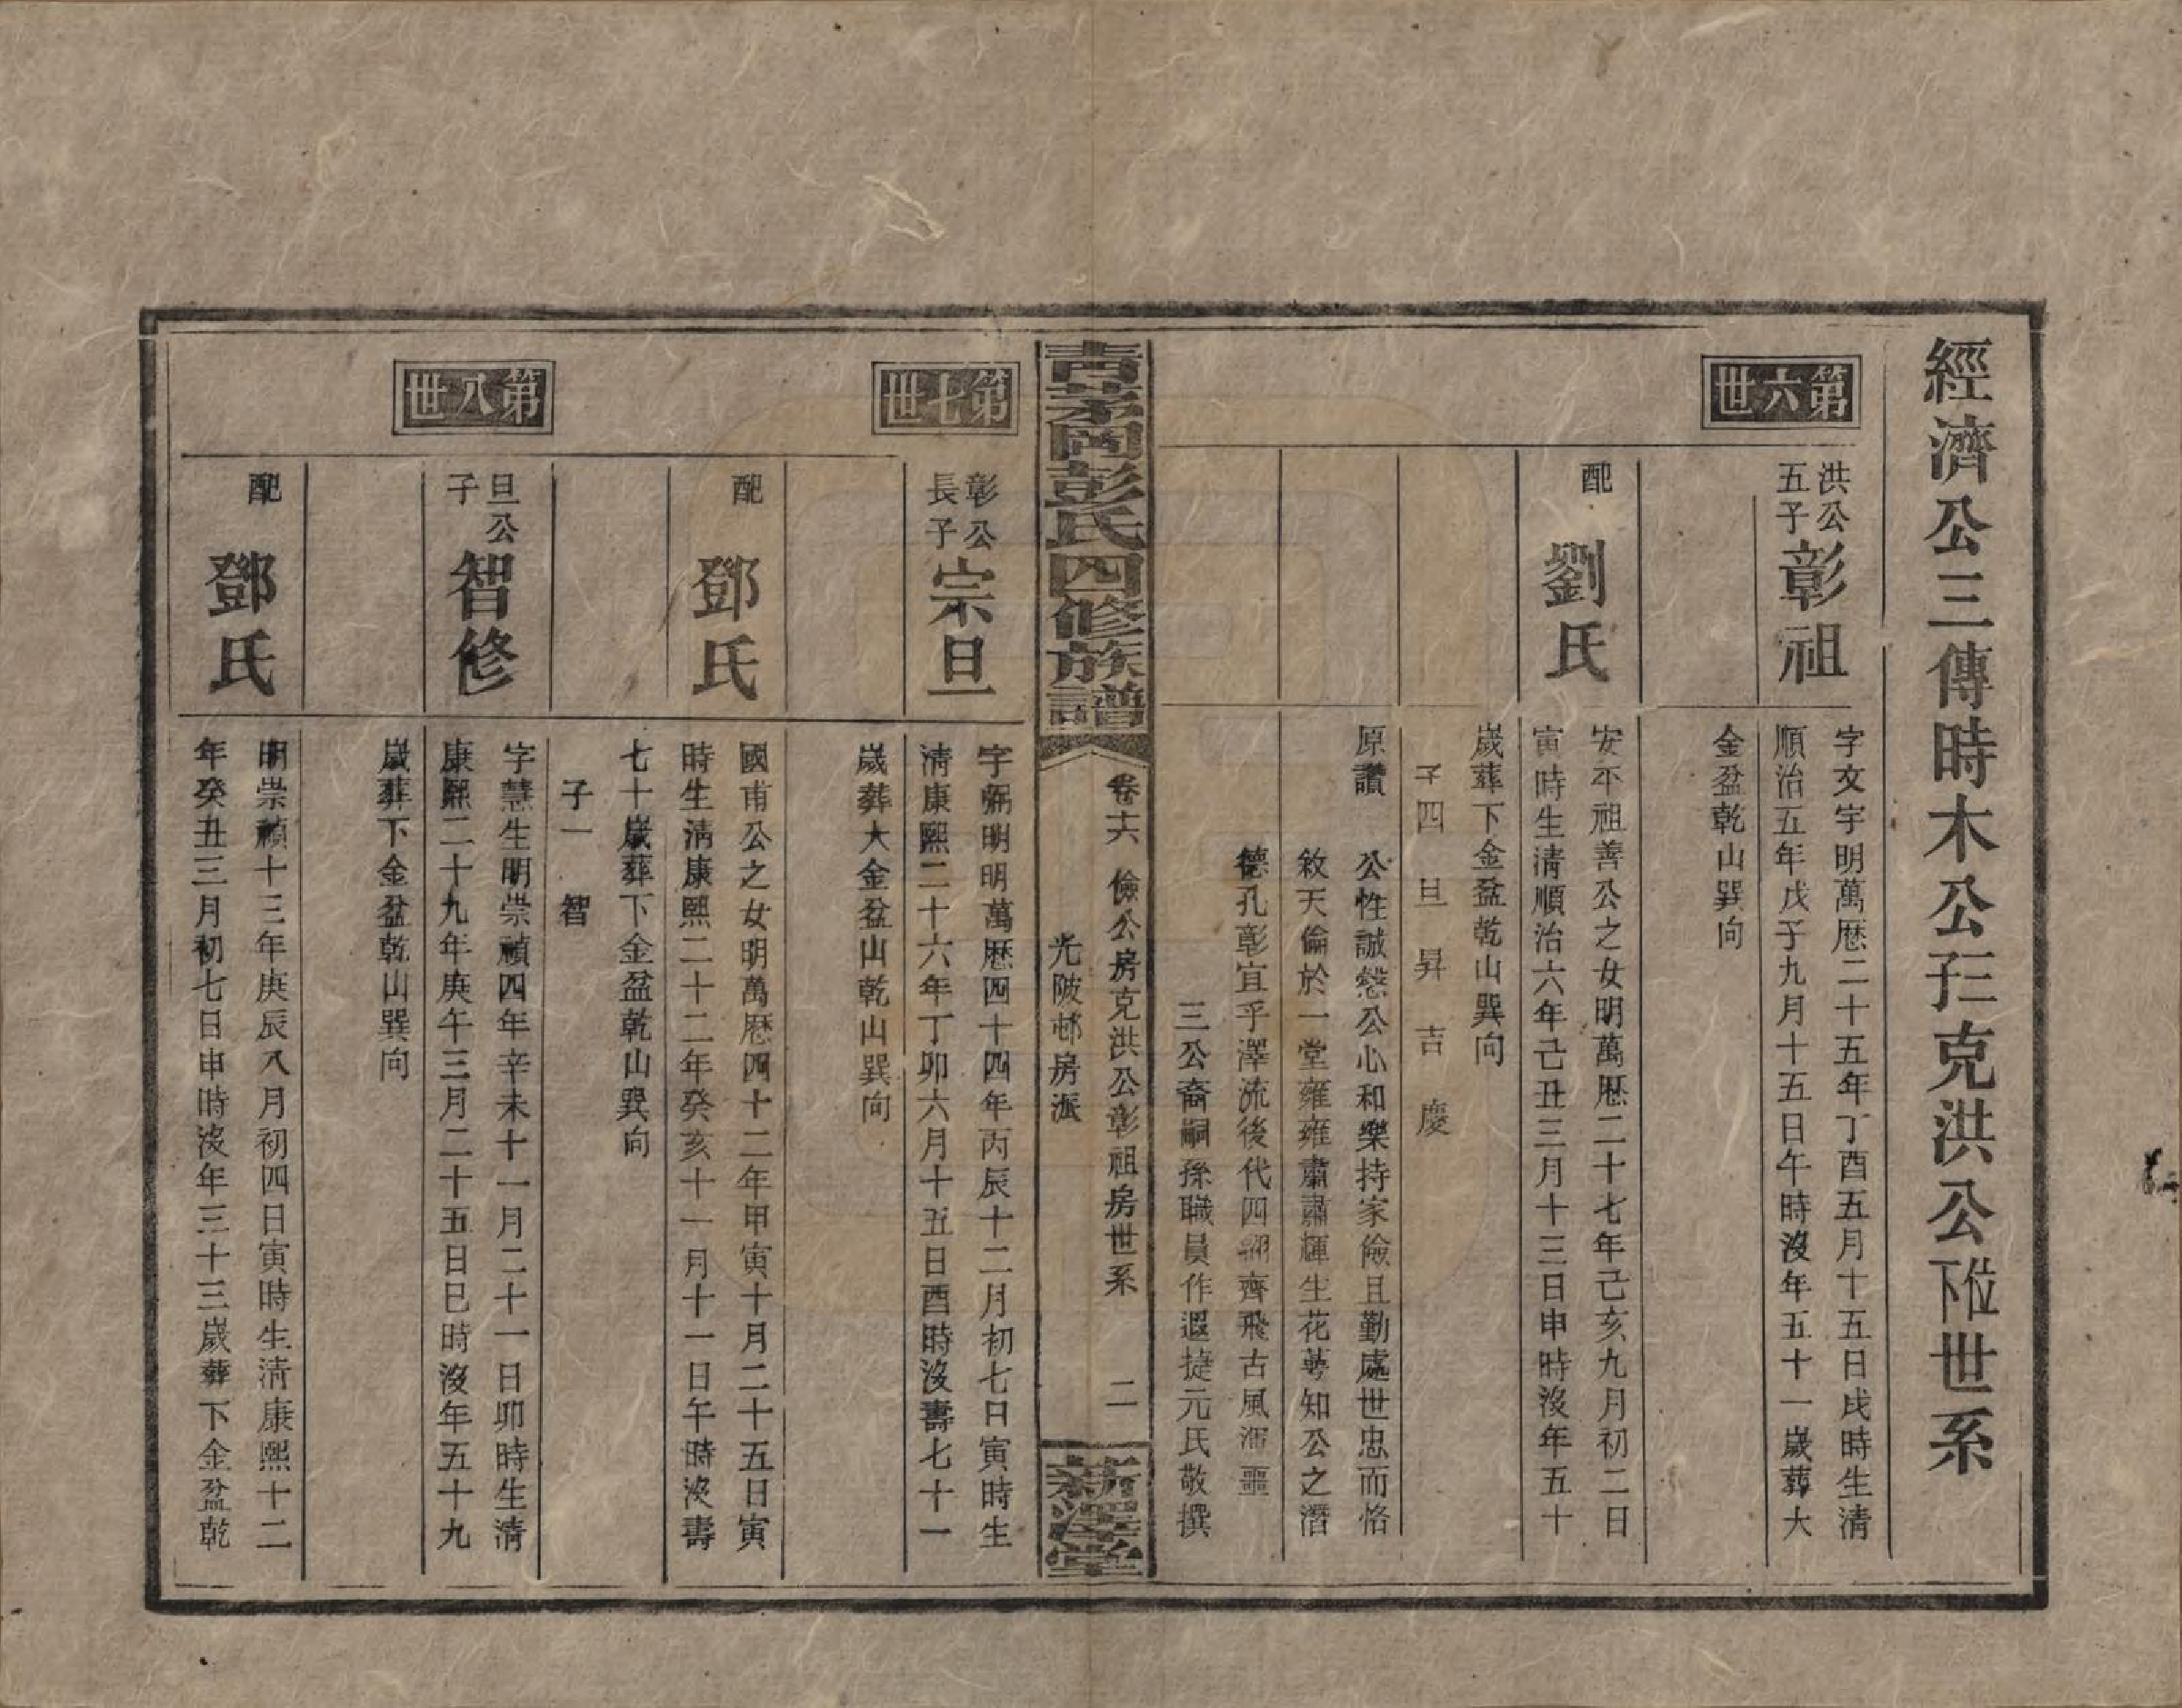 經濟公三傳時木公子三克洪公位下世系
第六世
洪公
五子
彰祖
字文宇明萬歷二十五年丁酉五月十五日戌時生清
順治五年戊子九月十五日午時沒年五十一歲葬大
金盆乾山巽向
配
劉氏
安平祖善公之女明萬歷二十七年己亥九月初二日
寅時生清順治六年己丑三月十三日申時沒年五十
歲葬下金盆乾山巽向
子四 旦 昇 吉 慶
原讚 公性誠慤公心和樂持家儉且勤處世忠而恪
敘天倫於一堂雍雍肅肅輝生花萼知公之潛
德孔彰宜乎澤流後代四翮齊飛古風 噩
三公裔嗣孫職員作遐捷元氏敬撰
青茅岡彭氏四修族譜
卷六 儉公房克洪公彰祖房世系
光陂邨房派
二
新澤堂
第七世
彰公
長子
宗旦
字 明明萬歷四十四年丙辰十二月初七日寅時生
清康熙二十六年丁卯六月十五日酉時沒壽七十一
歲葬大金盆山乾山巽向
配
鄧氏
國甫公之女明萬歷四十二年甲寅十月二十五日寅
時生清康熙二十二年癸亥十一月十一日午時沒壽
七十歲葬下金盆乾山巽向
子一 智
第八世
旦公
子
智修
字慧生明崇禎四年辛未十一月二十一日卯時生清
康熙二十九年庚午三月二十五日巳時沒年五十九
歲葬下金盆乾山巽向
配
鄧氏
明崇禎十三年庚辰八月初四日寅時生清康熙十二
年癸丑三月初七日申時沒年三十三歲葬下金盆乾